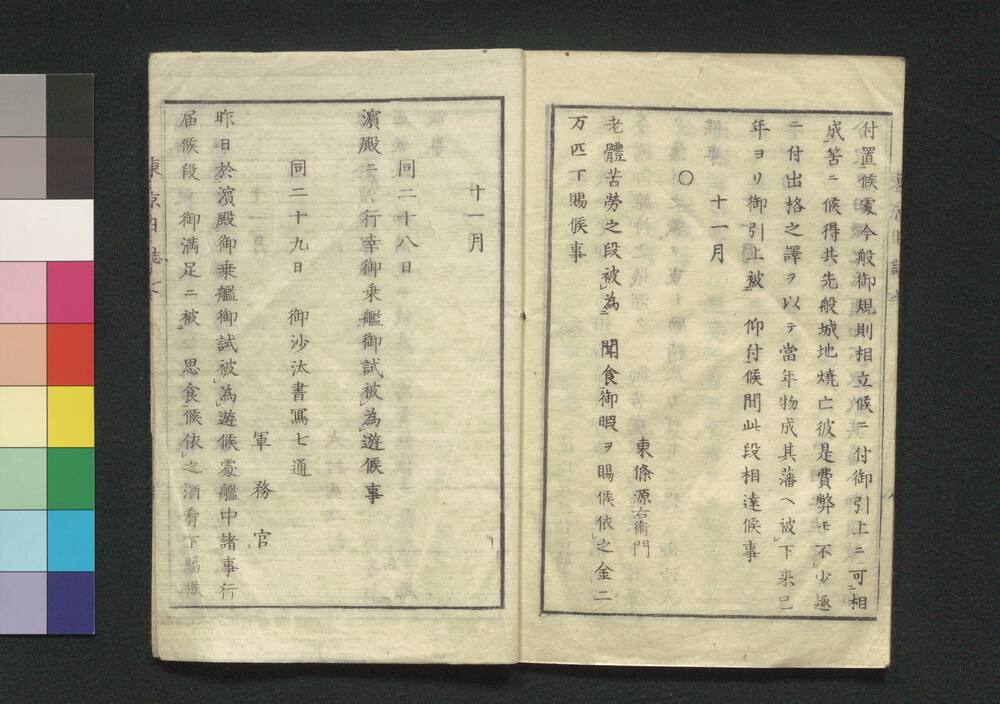 付置候處今般御規則相立候ニ付御引上ニ可相
成筈ニ候得共先般城地燒亡彼是費弊モ不少趣
ニ付出格之譯ヲ以テ當年物成其藩ヘ被下来巳
年ヨリ御引上被　仰付候間此段相達候事
十一月
○
東條源右衛門
老體苦勞之段被為　聞食御暇ヲ賜候依之金二
万匹下賜候事
十一月
同二十八日
濱殿ニ行幸御乗艦御試被為遊候事
同二十九日　御沙汰書寫七通
軍務官
昨日於濱殿御乗艦御試被為遊候處艦中諸事行
届候段　御満足ニ被　思食候依之酒肴下賜候
東京日誌